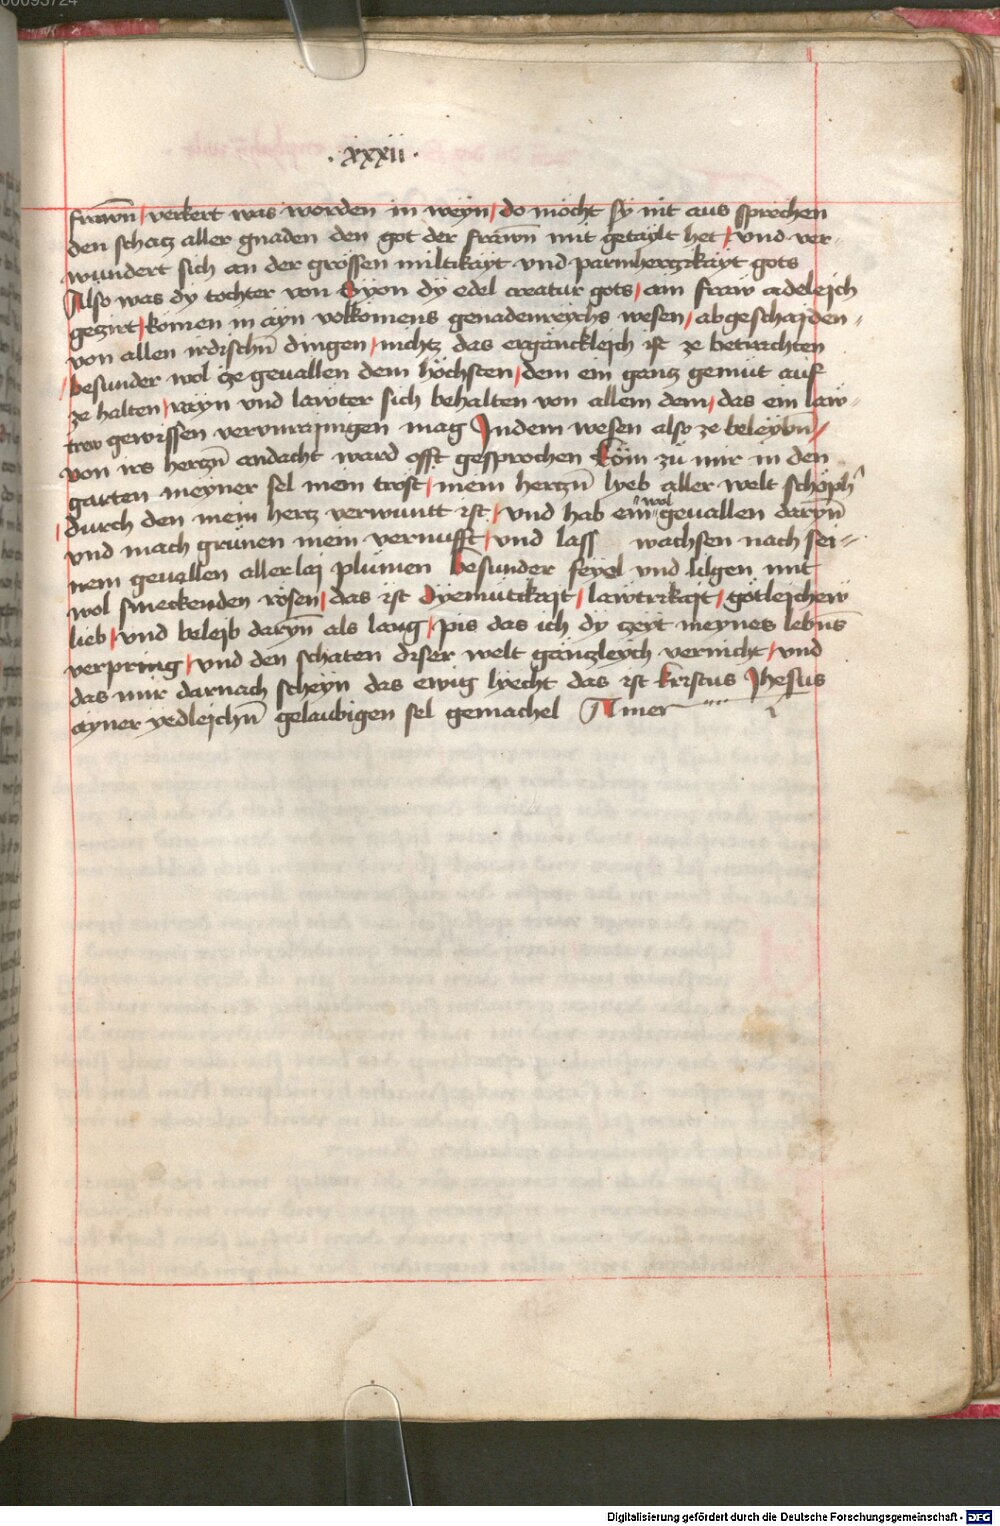 00093724
· xxxii ·
frawn̄ / verkert was worden in weyn / do mocht sy nit aus sprechen
den schatz aller gnaden den got der frawn̄ mit getaylt het / vnd ver-
wundert sich an der grössen miltikayt vnd parmhertzikayt gots
Also was dy tochter von Syon dy edel creatur gots / ain fraw adeleich
gezirt / komen in ayn volkomens genadenreychs wesen / abgeschaiden-
von allen irdischn̄ dingen / nichtz das ergänckleich ist ze betrachten
/ besunder wol cze geuallen dem höchsten / dem ein gantz gemüt auf
ze halten / rayn vnd lawter sich behalten von allem dem / das ein law-
trew gewissen vervnraijnigen mag Indem wesen also ze beleybn̄ /
von irs hertzn̄ andacht ward offt gesprochen Köm zu mir in den
garten meyner sel mein tröst / mein hertzn̄ lyeb aller welt schöph'
/ durch den mein hertz verwuntt ist / vnd hab ein wol geuallen daryn̄
vnd mach grünen mein vernufft / vnd lass wachsen nach sei-
nem geuallen allerlaj plümen besunder feyol vnd lilgen mit
wol smeckenden rösen / das ist dyemütikait / lawtrikait / götleichew
lieb / vnd beleib daryn̄ als lang / pis das ich dy czeyt meynes lebn̄s
verpring / vnd den schaten diser welt gäntzleych vernicht / vnd
das mir darnach scheyn das ewig lyecht das ist kristus Jhesus
ayner yedleichn̄ gelaubigen sel gemachel Amen
Digitalisierung gefördert durch die Deutsche Forschungsgemeinschaft - DFG